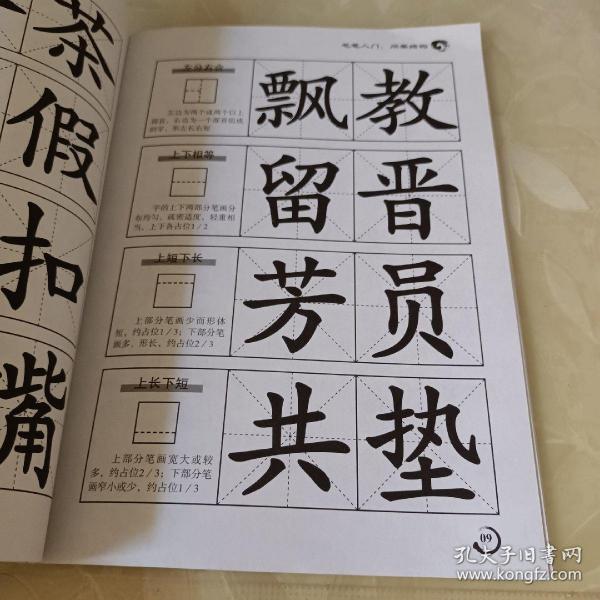 茶
假
扣
嘴
左分右合
左边为两个或两个以上
部首，右边为一个部首组成
的字，形左长右短
飘教
上下相等
字的上下两部分笔画分
布均匀，疏密适度，轻重相
当，上下各占位1/2
留晋
上短下长
上部分笔画少而形体
短，约占位1/3；下部分笔
画多、形长，约占位2/3
芳员
上长下短
上部分笔画宽大或较
多，约占位2/3；下部分笔
画窄小或少，约占位1/3
共垫
09
孔夫子旧书网
www.kongfz.com